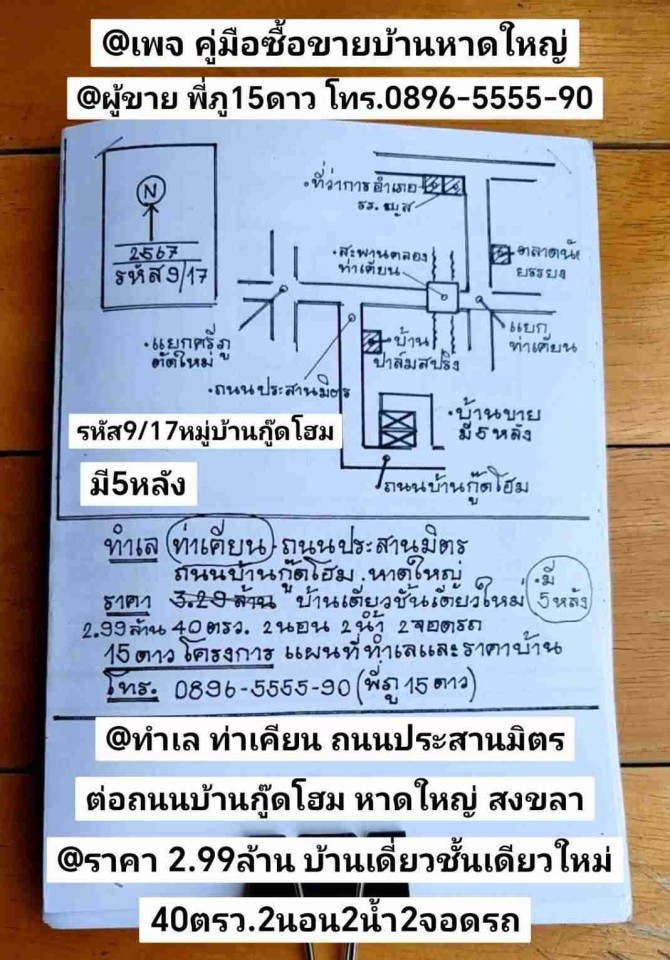 @เพจ คู่มือซื้อขายบ้านหาดใหญ่
@ผู้ขาย พี่ภู15ดาว โทร.0896-5555-90
N
2567
รหัส9/17
•ที่ว่าการอำเภอ
รร.ญส
•สะพานคลอง
ท่าเคียน
•ตลาดนัด
•แยก
ท่าเคียน
•แยกศรีภู
ตัดใหม่
•บ้าน
ปาล์มสปริง
•ถนนประสานมิตร
•บ้านขาย
มี5หลัง
รหัส9/17หมู่บ้านกู๊ดโฮม
มี5หลัง
•ถนนบ้านกู๊ดโฮม
ทำเล ท่าเคียน ถนนประสานมิตร
ถนนบ้านกู๊ดโฮม.หาดใหญ่
ราคา 3.29ล้าน บ้านเดี่ยวชั้นเดียวใหม่
•มี
5หลัง
2.99ล้าน 40ตรว. 2นอน 2น้ำ 2จอดรถ
15ดาวโครงการ แผนที่ทำเลและราคาบ้าน
โทร. 0896-5555-90(พี่ภู15ดาว)
@ทำเล ท่าเคียน ถนนประสานมิตร
ต่อถนนบ้านกู๊ดโฮม หาดใหญ่ สงขลา
@ราคา 2.99ล้าน บ้านเดี่ยวชั้นเดียวใหม่
40ตรว.2นอน2น้ำ2จอดรถ